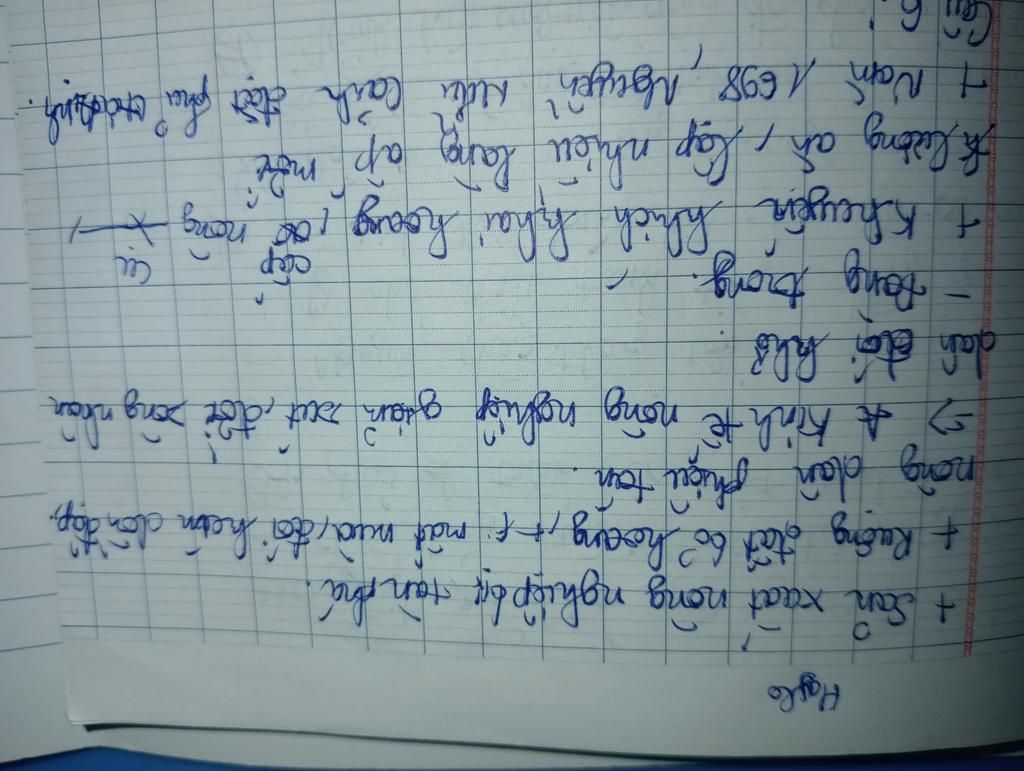 + Sản xuất nông nghiệp bị tàn phá.
+ Ruộng đất bỏ hoang, mất mùa, đói kém dồn dập,
nông dân phiêu tán.
=> Kinh tế nông nghiệp giảm sút, đời sống nhân
dân đói khổ
- Đàng trong.
+ Khuyến khích khai hoang, cấp nông cụ
lương ăn, lập nhiều làng ấp mới
+ Năm 1698, Nguyễn Hữu Cảnh đặt phủ
Câu 6: